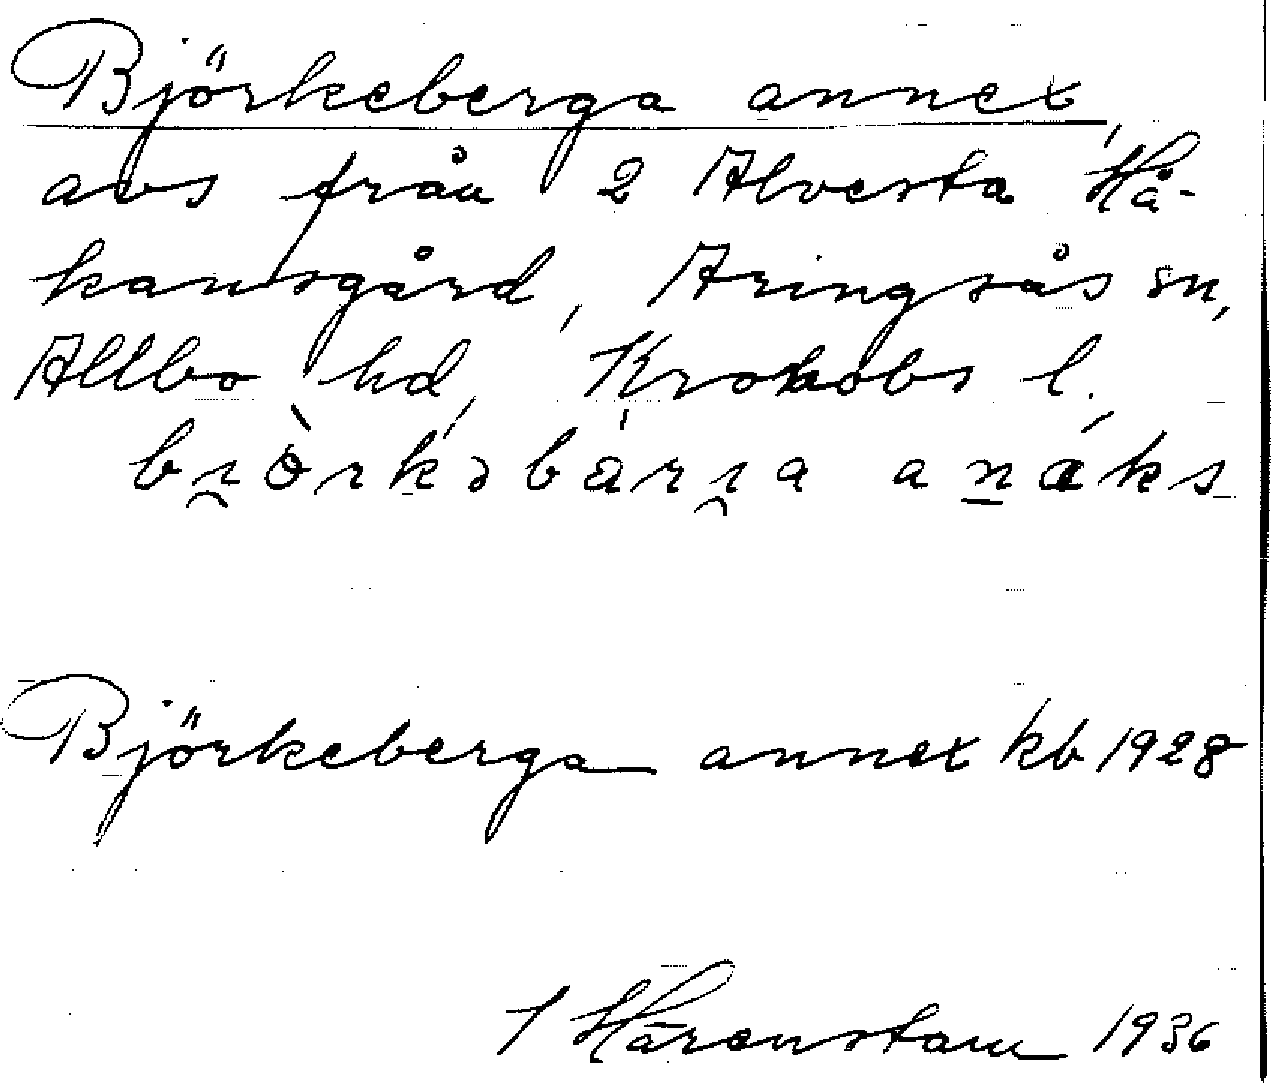 Björkeberga annex,
avs från 2 Alvesta Hå-
kansgård, Aringsås sn,
Allbo hd, Kronobs l.
Björkeberga annex kb 1928
J Härenstam 1936